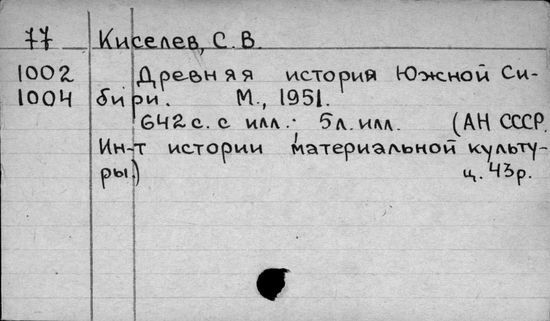 77 Киселев, С. В.
1002 Древняя история Южной Си-
1004 бири. М., 1951.
642 с. с илл.; 5 л. илл. (АН СССР.
Ин-т истории материальной культу-
ры.) ц. 43 р.